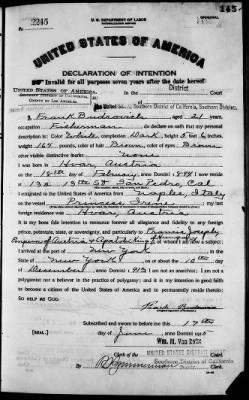 145
2245
U. S. DEPARTMENT OF LABOR
ORIGINAL
UNITED STATES OF AMERICA
DECLARATION OF INTENTION
Invalid for all purposes seven years after the date hereof
UNITED STATES OF AMERICA
District
Southern District of California, Southern Division
I, Frank Budrovich, aged 21 years,
occupation Fisherman, do declare on oath that my personal
description is: Color White, complexion Dark, height 5 feet 6 inches,
weight 164 pounds, color of hair Brown, color of eyes Brown
other visible distinctive marks None
I was born in Hvar, Austria
on the 18th day of February, anno Domini
18th St San Pedro, Cal
I emigrated to the United States of America from Naples, Italy
on the vessel Princess Irene; my last
foreign residence was Hvar, Austria
It is my bona fide intention to renounce forever all allegiance and fidelity to any foreign
prince, potentate, state, or sovereignty, and particularly to Francis Joseph,
Emperor of Austria & Apostolic King of Hungary, of whom I am now a subject;
I arrived at the port of New York, in the
State of New York, on or about the 10th day
of December, anno Domini; I am not an anarchist; I am not a
polygamist nor a believer in the practice of polygamy; and it is my intention in good faith
to become a citizen of the United States of America and to permanently reside therein:
SO HELP ME GOD.
Subscribed and sworn to before me this 17th
[SEAL.] day of June, anno Domini
Wm. M. Van Dyke
Clerk of the UNITED STATES DISTRICT COURT
Southern District of California